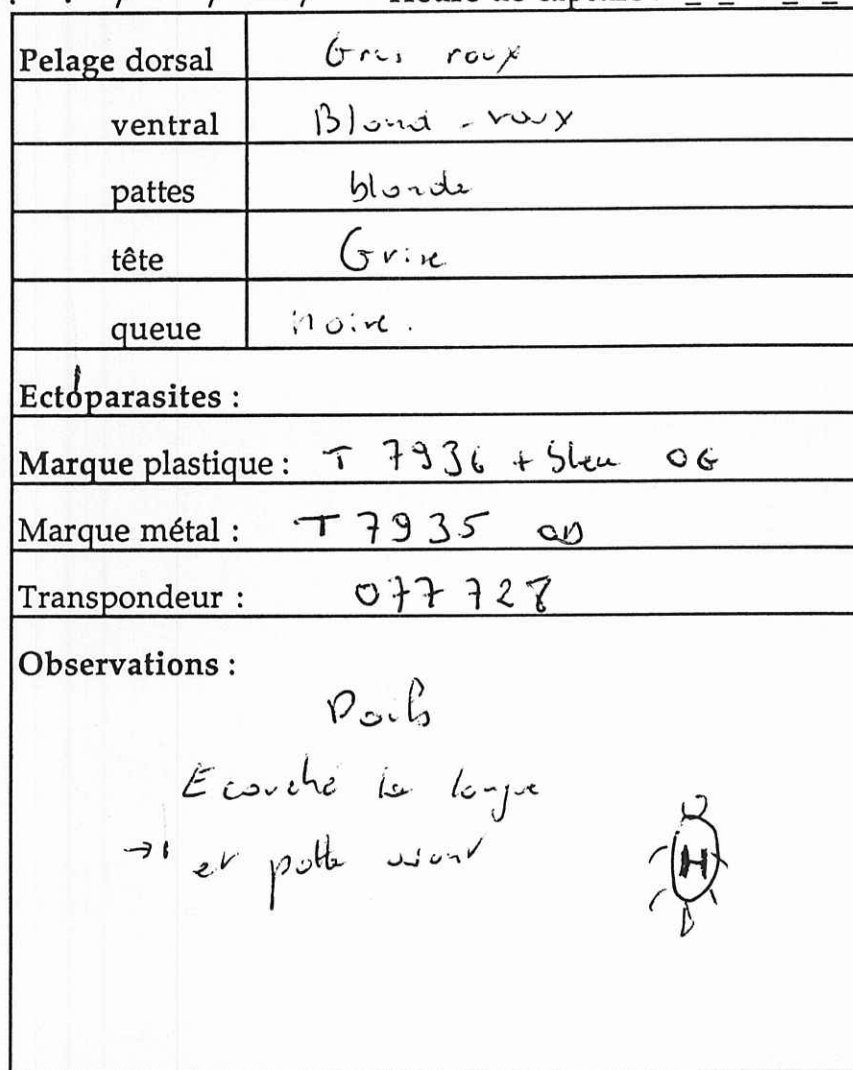 Pelage dorsal Gris roux
ventral Blond - roux
pattes blonde
tête Grise
queue noire.
Ectoparasites :
Marque plastique : T 7936 + bleu OG
Marque métal : T 7935 OD
Transpondeur : 077 728
Observations :
Poils
Ecorché la langue
→ et patte avant
H